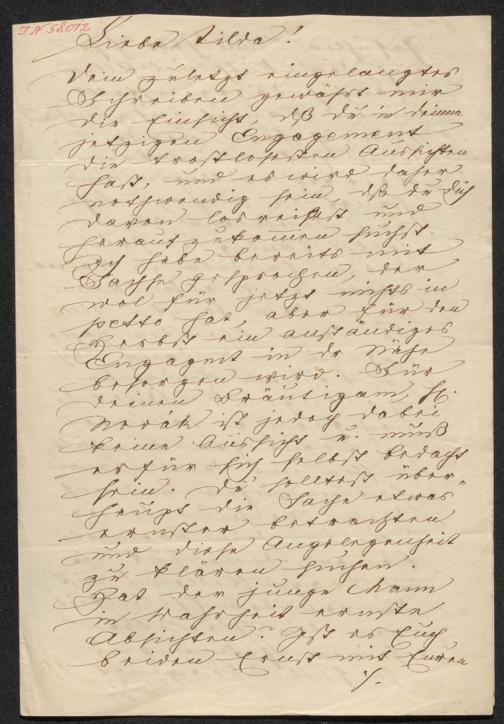 J.N. 58012
Liebe Tilda!
Dein zuletzt eingelangtes
Schreiben gewährt mir
die Einsicht, dß du in deinem
jetzigen Engagement
die trostlosesten Aussichten
hast, und es wird daher
nothwendig sein, dß du dich
davon losreißest und
herauszukommen suchst.
Ich habe bereits mit
Sachse gesprochen, der
wol für jetzt nichts in
petto hat, aber für den
Herbst ein anständiges
Engagmt in dr Nähe
besorgen wird. Für
deinen Bräutigam, H.
Novák ist jedoch dabei
keine Aussicht u. muß
er für sich selbst bedacht
sein. Du solltest über-
haupt die Sache etwas
ernster betrachten
und diese Angelegenheit
zu klären suchen.
Hat der junge Mann
in Wahrheit ernste
Absichten? Ist es Euch
beiden Ernst mit Euren
./.